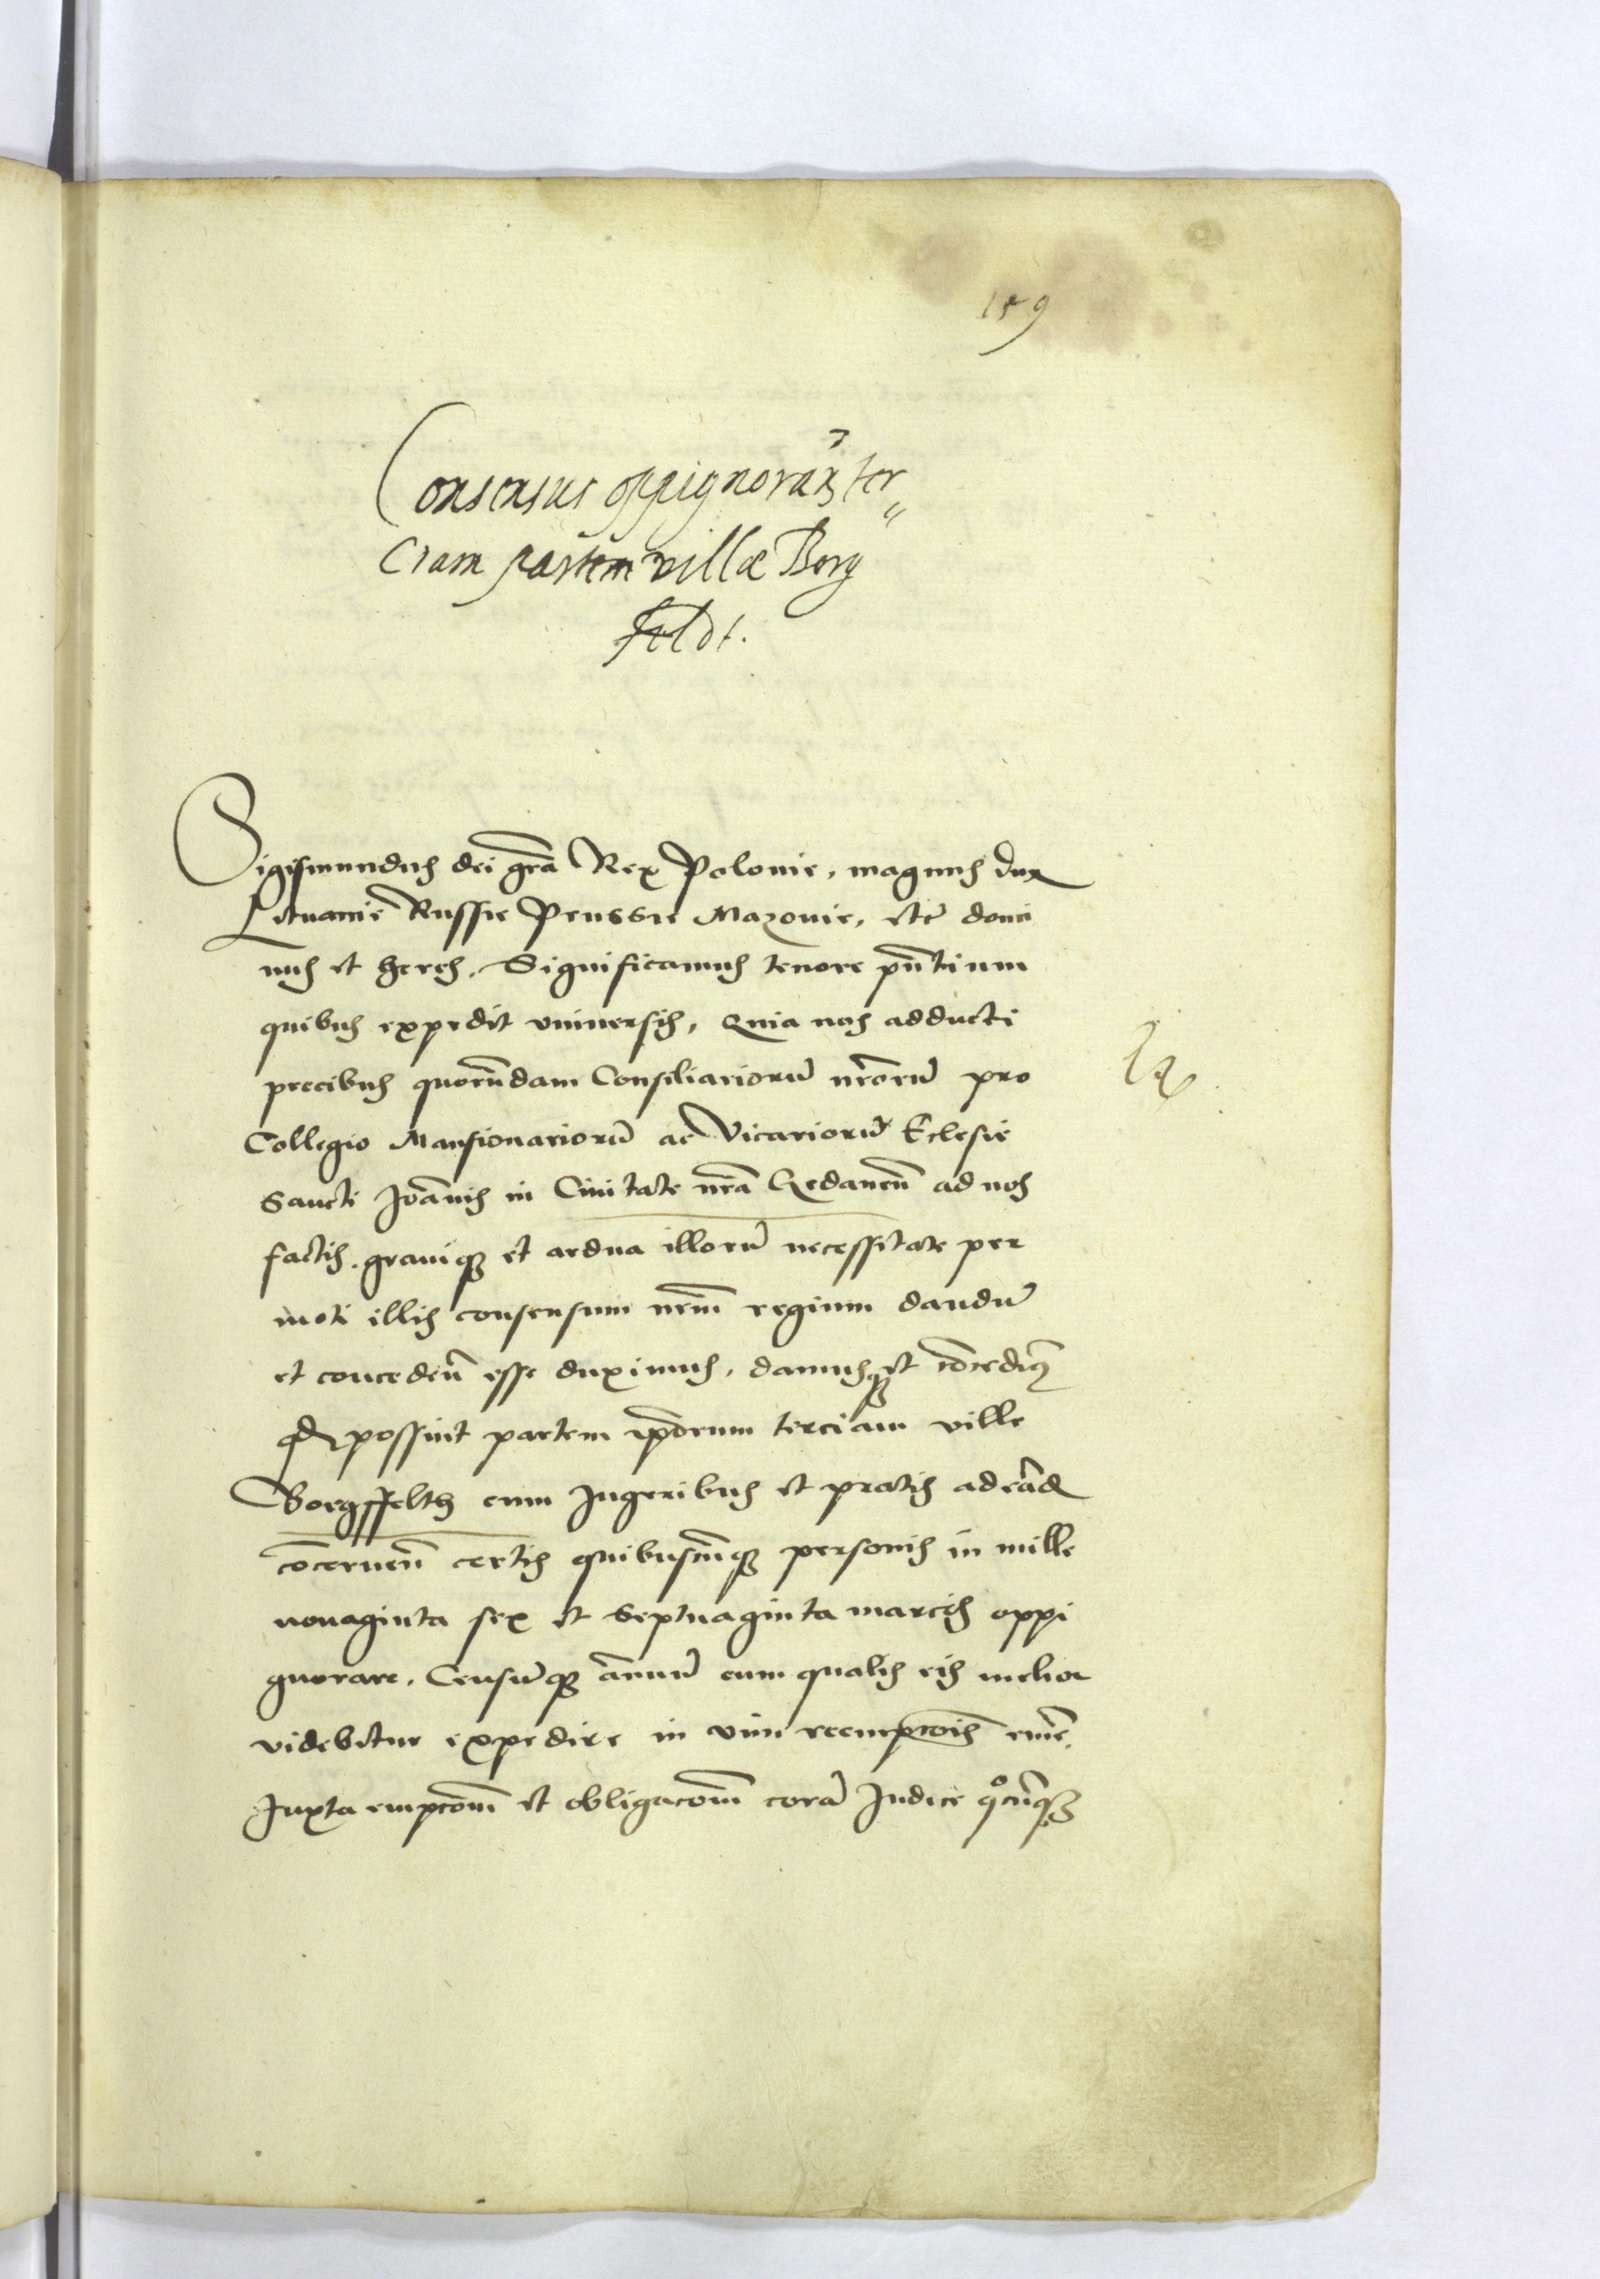 159
Consensus oppignoran̄ ter
ciam partem villæ Borg
feldt.
Sigismundus dei gr̃a Rex Polonie, magnus dux
Lituanie Russie Prussie Mazouie, etc̃ domi
nus et heres. Significamus tenore pñtium
quibus expedit vniuersis, Quia nos adducti
precibus quorūdam Consiliariorũ nr̃orũ pro
Collegio Mansionariorũ ac Vicariorũ Eclesie
Sancti Joãnis in Ciuitate nr̃a Gedaneñ ad nos
factis. grauiq; et ardua illorũ necessitate per
moti illis consensum nr̃m regium dandũ
et concedeñ esse duximus, damusq; et cõcedimꝰ
qd possint partem ip̃orum terciam ville
Borgsffelth cum Jugeribus et pratis ad eãd
cõcerneñ certis quibuscũq; personis in mille
nonaginta sex et Septuaginta marcis oppi
gnorare. Censũq; ãnuũ cum qualis eis melior
videbitur expedire in vim reempcõis eme
Juxta empcõem et obligacõem corã Judice qºcũq;